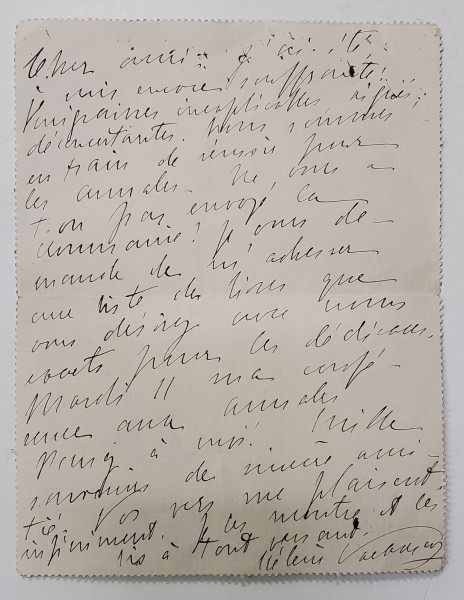 Cher ami: j'ai été
et suis encore souffrante:
migraines inexplicables
déconcertantes. Nous sommes
en train de réussir pour
les annales. Ne vous a
t-on pas envoyé la
commande? Je vous de-
mande de m'adresser
une liste des livres que
vous désirez avec noms
exacts pour les dédicaces.
Mardi 11 ma confé-
rence aux annales
Pensez à moi! Mille
souvenirs de sincère ami-
tié. Vos vers me plaisent
infiniment. Je les montre et les
lis à tout venant.
Hélène Vacaresco